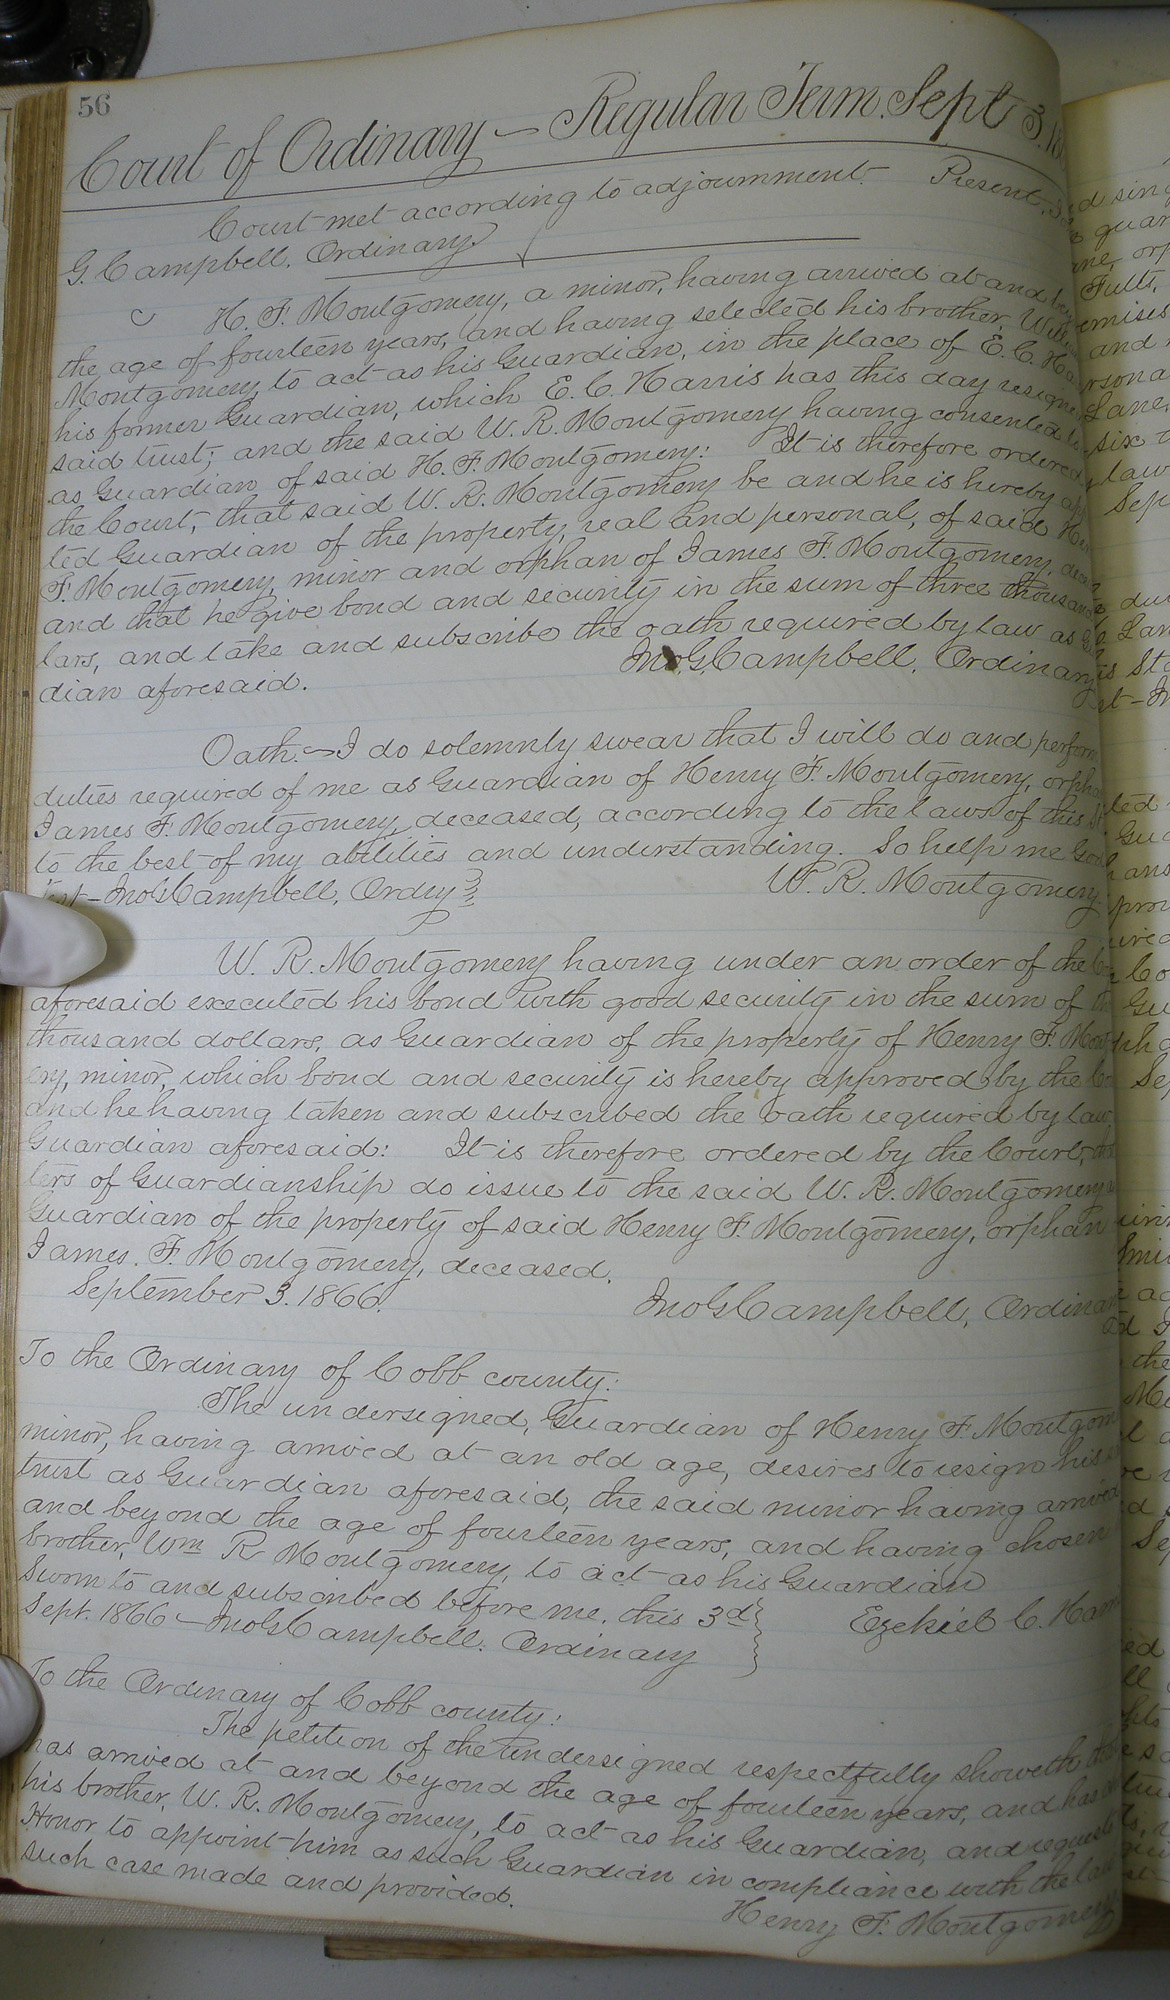 56
Court of Ordinary — Regular Term. Sept 3, 18
Court met according to adjournment. Present,
G. Campbell, Ordinary
H. F. Montgomery, a minor, having arrived at and
the age of fourteen years, and having selected his brother,
Montgomery, to act as his Guardian, in the place of E. C.
his former Guardian, which E. C. Harris has this day
said trust; and the said W. R. Montgomery having consented
as Guardian of said H. F. Montgomery: It is therefore ordered
the Court, that said W. R. Montgomery be and he is hereby
ted Guardian of the property, real and personal, of said
F. Montgomery, minor and orphan of James F. Montgomery,
and that he give bond and security in the sum of three
lars, and take and subscribe the oath required by law as
dian aforesaid. Jno. G. Campbell, Ordinary
Oath. — I do solemnly swear that I will do and perform
duties required of me as Guardian of Henry F. Montgomery,
James F. Montgomery, deceased, according to the laws of this
to the best of my abilities and understanding. So help me God
Jno G Campbell, Ordry W. R. Montgomery
W. R. Montgomery having under an order of the
aforesaid executed his bond with good security in the sum of
thousand dollars, as Guardian of the property of Henry F.
ery, minor, which bond and security is hereby approved by the
and he having taken and subscribed the oath required by law,
Guardian aforesaid: It is therefore ordered by the Court,
ters of Guardianship do issue to the said W. R. Montgomery
Guardian of the property of said Henry F. Montgomery, orphan
James. F. Montgomery, deceased.
September 3. 1866. Jno G Campbell, Ordinar
To the Ordinary of Cobb county:
The undersigned, Guardian of Henry F. Montgom
minor, having arrived at an old age, desires to resign his
trust as Guardian aforesaid, the said minor having arrived
and beyond the age of fourteen years, and having chosen
brother, Wm R Montgomery, to act as his Guardian
Sworn to and subscribed before me, this 3d Ezekiel C. Harri
Sept. 1866 — Jno G Campbell. Ordinary
To the Ordinary of Cobb county:
The petition of the undersigned respectfully showeth
has arrived at and beyond the age of fourteen years, and has
his brother, W. R. Montgomery, to act as his Guardian, and requests
Honor to appoint him as such Guardian in compliance with the
such case made and provided.
Henry F. Montgomery